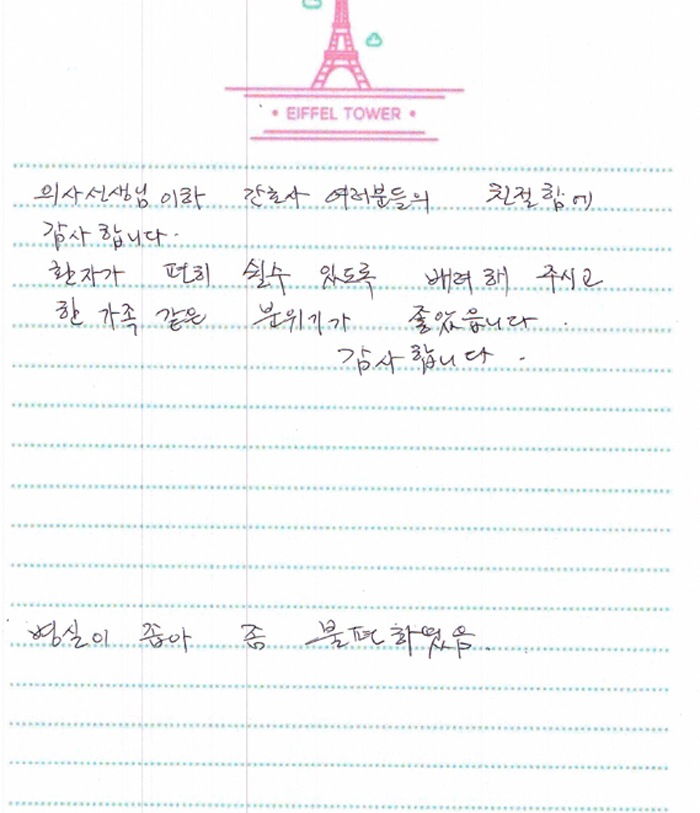 • EIFFEL TOWER •
의사선생님 이하 간호사 여러분들의 친절함에
감사합니다.
환자가 편히 쉴수 있도록 배려해 주시고
한 가족 같은 분위기가 좋았읍니다.
감사합니다.
병실이 좁아 좀 불편하였음.